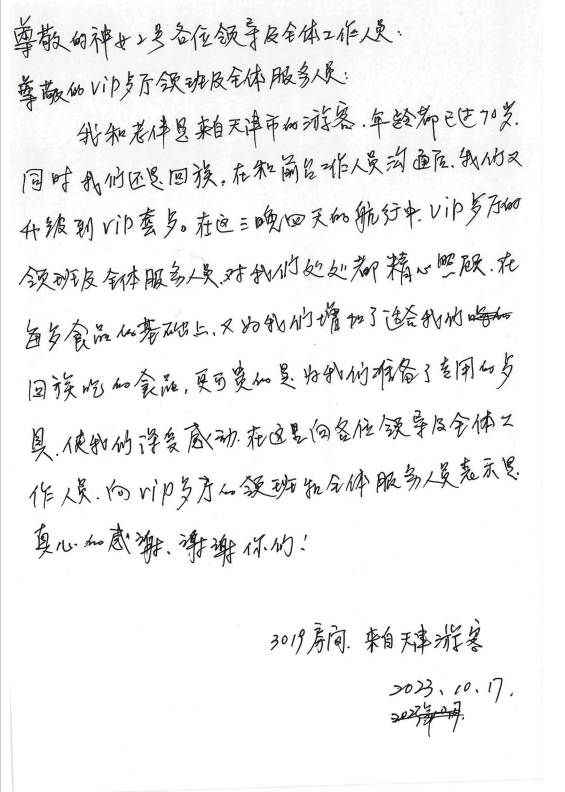 尊敬的神女2号各位领导及全体工作人员:
尊敬的vip餐厅领班及全体服务人员:
我和老伴是来自天津市的游客.年龄都已过70岁.
同时我们还是回族。在和前台工作人员沟通后.我们又
升级到vip套餐。在这三晚四天的航行中.vip餐厅的
领班及全体服务人员.对我们处处都精心照顾.在
每餐食品的基础上.又为我们增加了适合我们
回族吃的食品,更可贵的是.为我们准备了专用的餐
具.使我们深受感动.在这里向各位领导及全体工
作人员.向vip餐厅的领班和全体服务人员表示最
真心的感谢、谢谢你们!
3019房间.来自天津游客
2023.10.17.